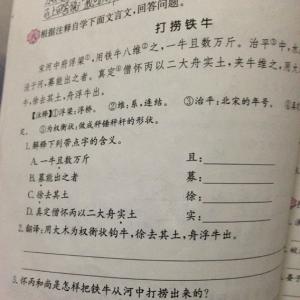 根据注释自学下面文言文,回答问题。
打捞铁牛
宋河中府浮梁①,用铁牛八维②之,一牛且数万斤。治平③中,水
流于河,募能出之者。真定④僧怀丙以二大舟实土,夹牛维之,用大
牛,徐去其土,舟浮牛出。
【注释】①浮梁:浮桥。 ②维:系,连结。 ③治平:北宋的年号。
定。 ⑤为权衡状:做成秤锤秤杆的形状。
1. 解释下列带点字的含义。
A. 一牛且数万斤 且:
B. 募能出之者 募:
C. 徐去其土 徐:
D. 真定僧怀丙以二大舟实土 实:
2. 翻译:用大木为权衡状钩牛,徐去其土,舟浮牛出。
3. 怀丙和尚是怎样把铁牛从河中打捞出来的?